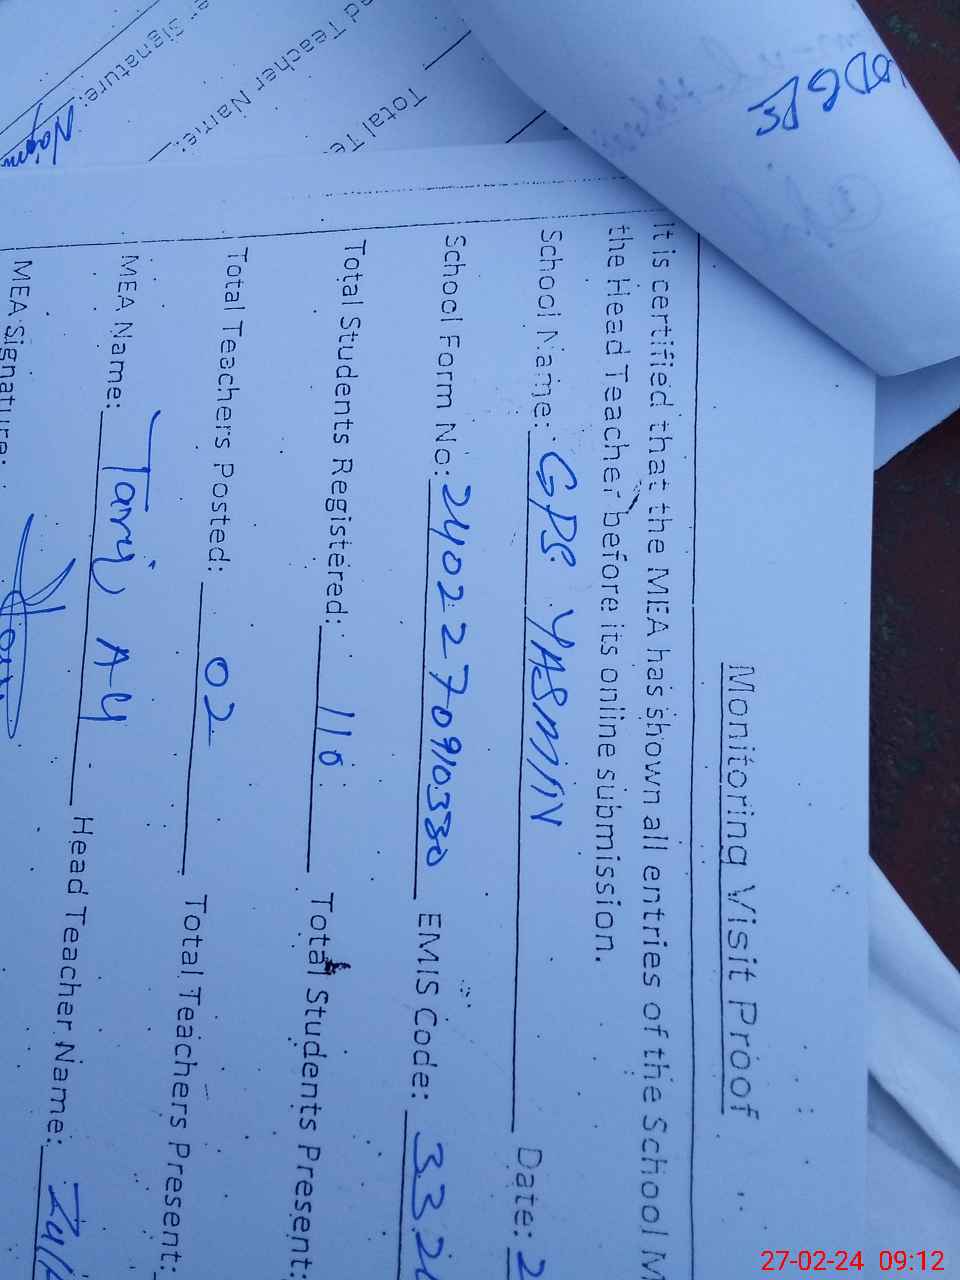 Monitoring Visit Proof
It is certified that the MEA has shown all entries of the School M
the Head Teacher before its online submission.
School Name: GPS YASMIN Date: 2
School Form No: 2402270910330 EMIS Code: 332
Total Students Registered: 110 Total Students Present:
Total Teachers Posted: 02 Total Teachers Present:
MEA Name: Tariq Ali Head Teacher Name:
MEA Signature:
Total Te
d Teacher Name:
Signature:
27-02-24 09:12